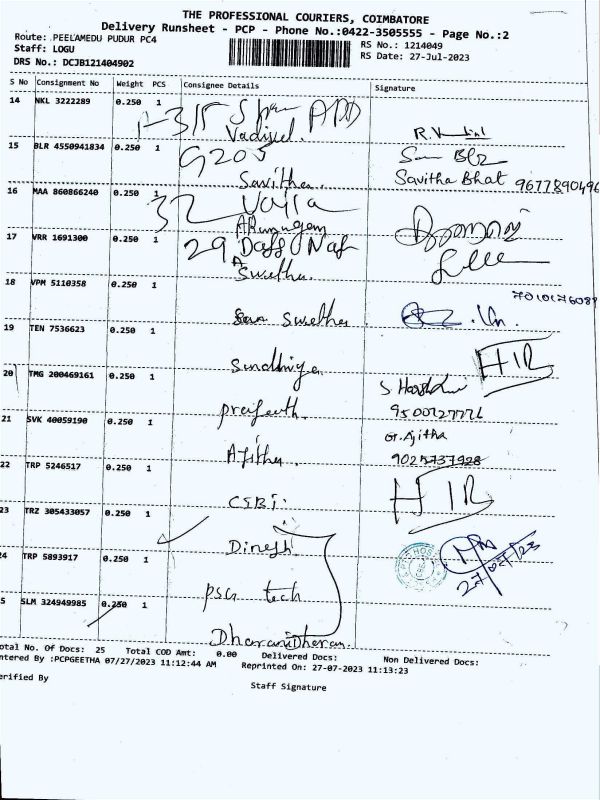 THE PROFESSIONAL COURIERS, COIMBATORE
Delivery Runsheet - PCP - Phone No.:0422-3505555 - Page No.:2
Route: PEELAMEDU PUDUR PC4
Staff: LOGU
RS No.: 1214049
DRS No.: DCJB121404902
RS Date: 27-Jul-2023
S No Consignment No Weight PCS Consignee Details Signature
14 NKL 3222289 0.250 1
Vadivel.
15 BLR 4550941834 0.250 1 G205
Savitha. Savitha Bhat 9677890496
16 MAA 860866240 0.250 1 32
Arumugam
17 VRR 1691300 0.250 1 29
Swetha.
18 VPM 5110358 0.250 1 7010176089
Swetha
19 TEN 7536623 0.250 1
Sindhiya HIR
20 TMG 200469161 0.250 1
9500127776
21 SVK 40059190 0.250 1 G.Ajitha
Ajitha. 9025737928
22 TRP 5246517 0.250 1
CIBI. HIR
23 TRZ 305433057 0.250 1
Dinesh
24 TRP 5893917 0.250 1 27/07/23
PSG tech
5 SLM 324949985 0.250 1
Dharanidharan.
otal No. Of Docs: 25 Total COD Amt: 0.00 Delivered Docs: Non Delivered Docs:
ntered By :PCPGEETHA 07/27/2023 11:12:44 AM Reprinted On: 27-07-2023 11:13:23
erified By
Staff Signature